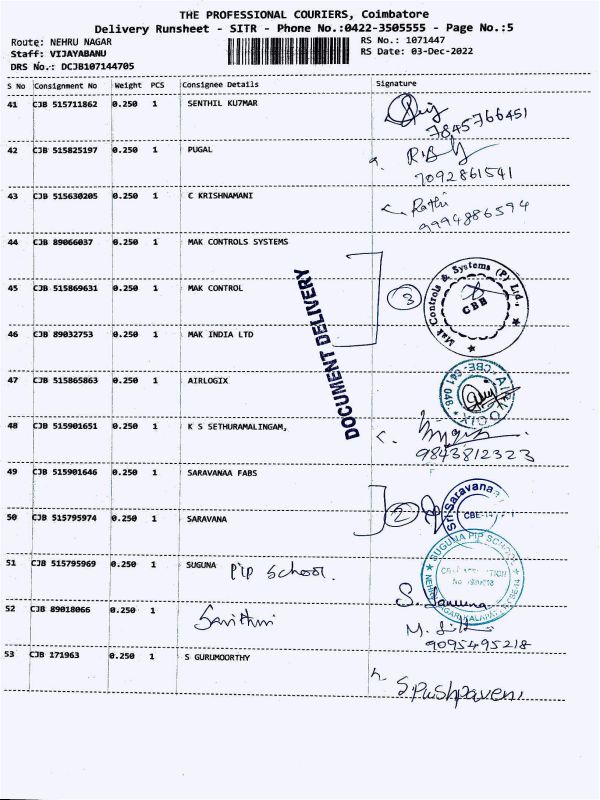 THE PROFESSIONAL COURIERS, Coimbatore
Delivery Runsheet - SITR - Phone No.:0422-3505555 - Page No.:5
Route: NEHRU NAGAR RS No.: 1071447
Staff: VIJAYABANU RS Date: 03-Dec-2022
DRS No.: DCJB107144705
S No Consignment No Weight PCS Consignee Details Signature
41 CJB 515711862 0.250 1 SENTHIL KU7MAR
7845766451
42 CJB 515825197 0.250 1 PUGAL
7092861541
43 CJB 515630205 0.250 1 C KRISHNAMANI Rathi
9994886594
44 CJB 89066037 0.250 1 MAK CONTROLS SYSTEMS
45 CJB 515869631 0.250 1 MAK CONTROL 3 Mak Controls & Systems (P) Ltd. CBE
46 CJB 89032753 0.250 1 MAK INDIA LTD
DOCUMENT DELIVERY
47 CJB 515865863 0.250 1 AIRLOGIX AIRLOGIX CBE-641 048
48 CJB 515901651 0.250 1 K S SETHURAMALINGAM,
9843812323
49 CJB 515901646 0.250 1 SARAVANAA FABS
50 CJB 515795974 0.250 1 SARAVANA 2 Sri Saravana CBE-14
51 CJB 515795969 0.250 1 SUGUNA PIP School. SUGUNA PIP SCHOOL
52 CJB 89018066 0.250 1 Savithri
9095495218
53 CJB 171963 0.250 1 S GURUMOORTHY
S Pushpaveni